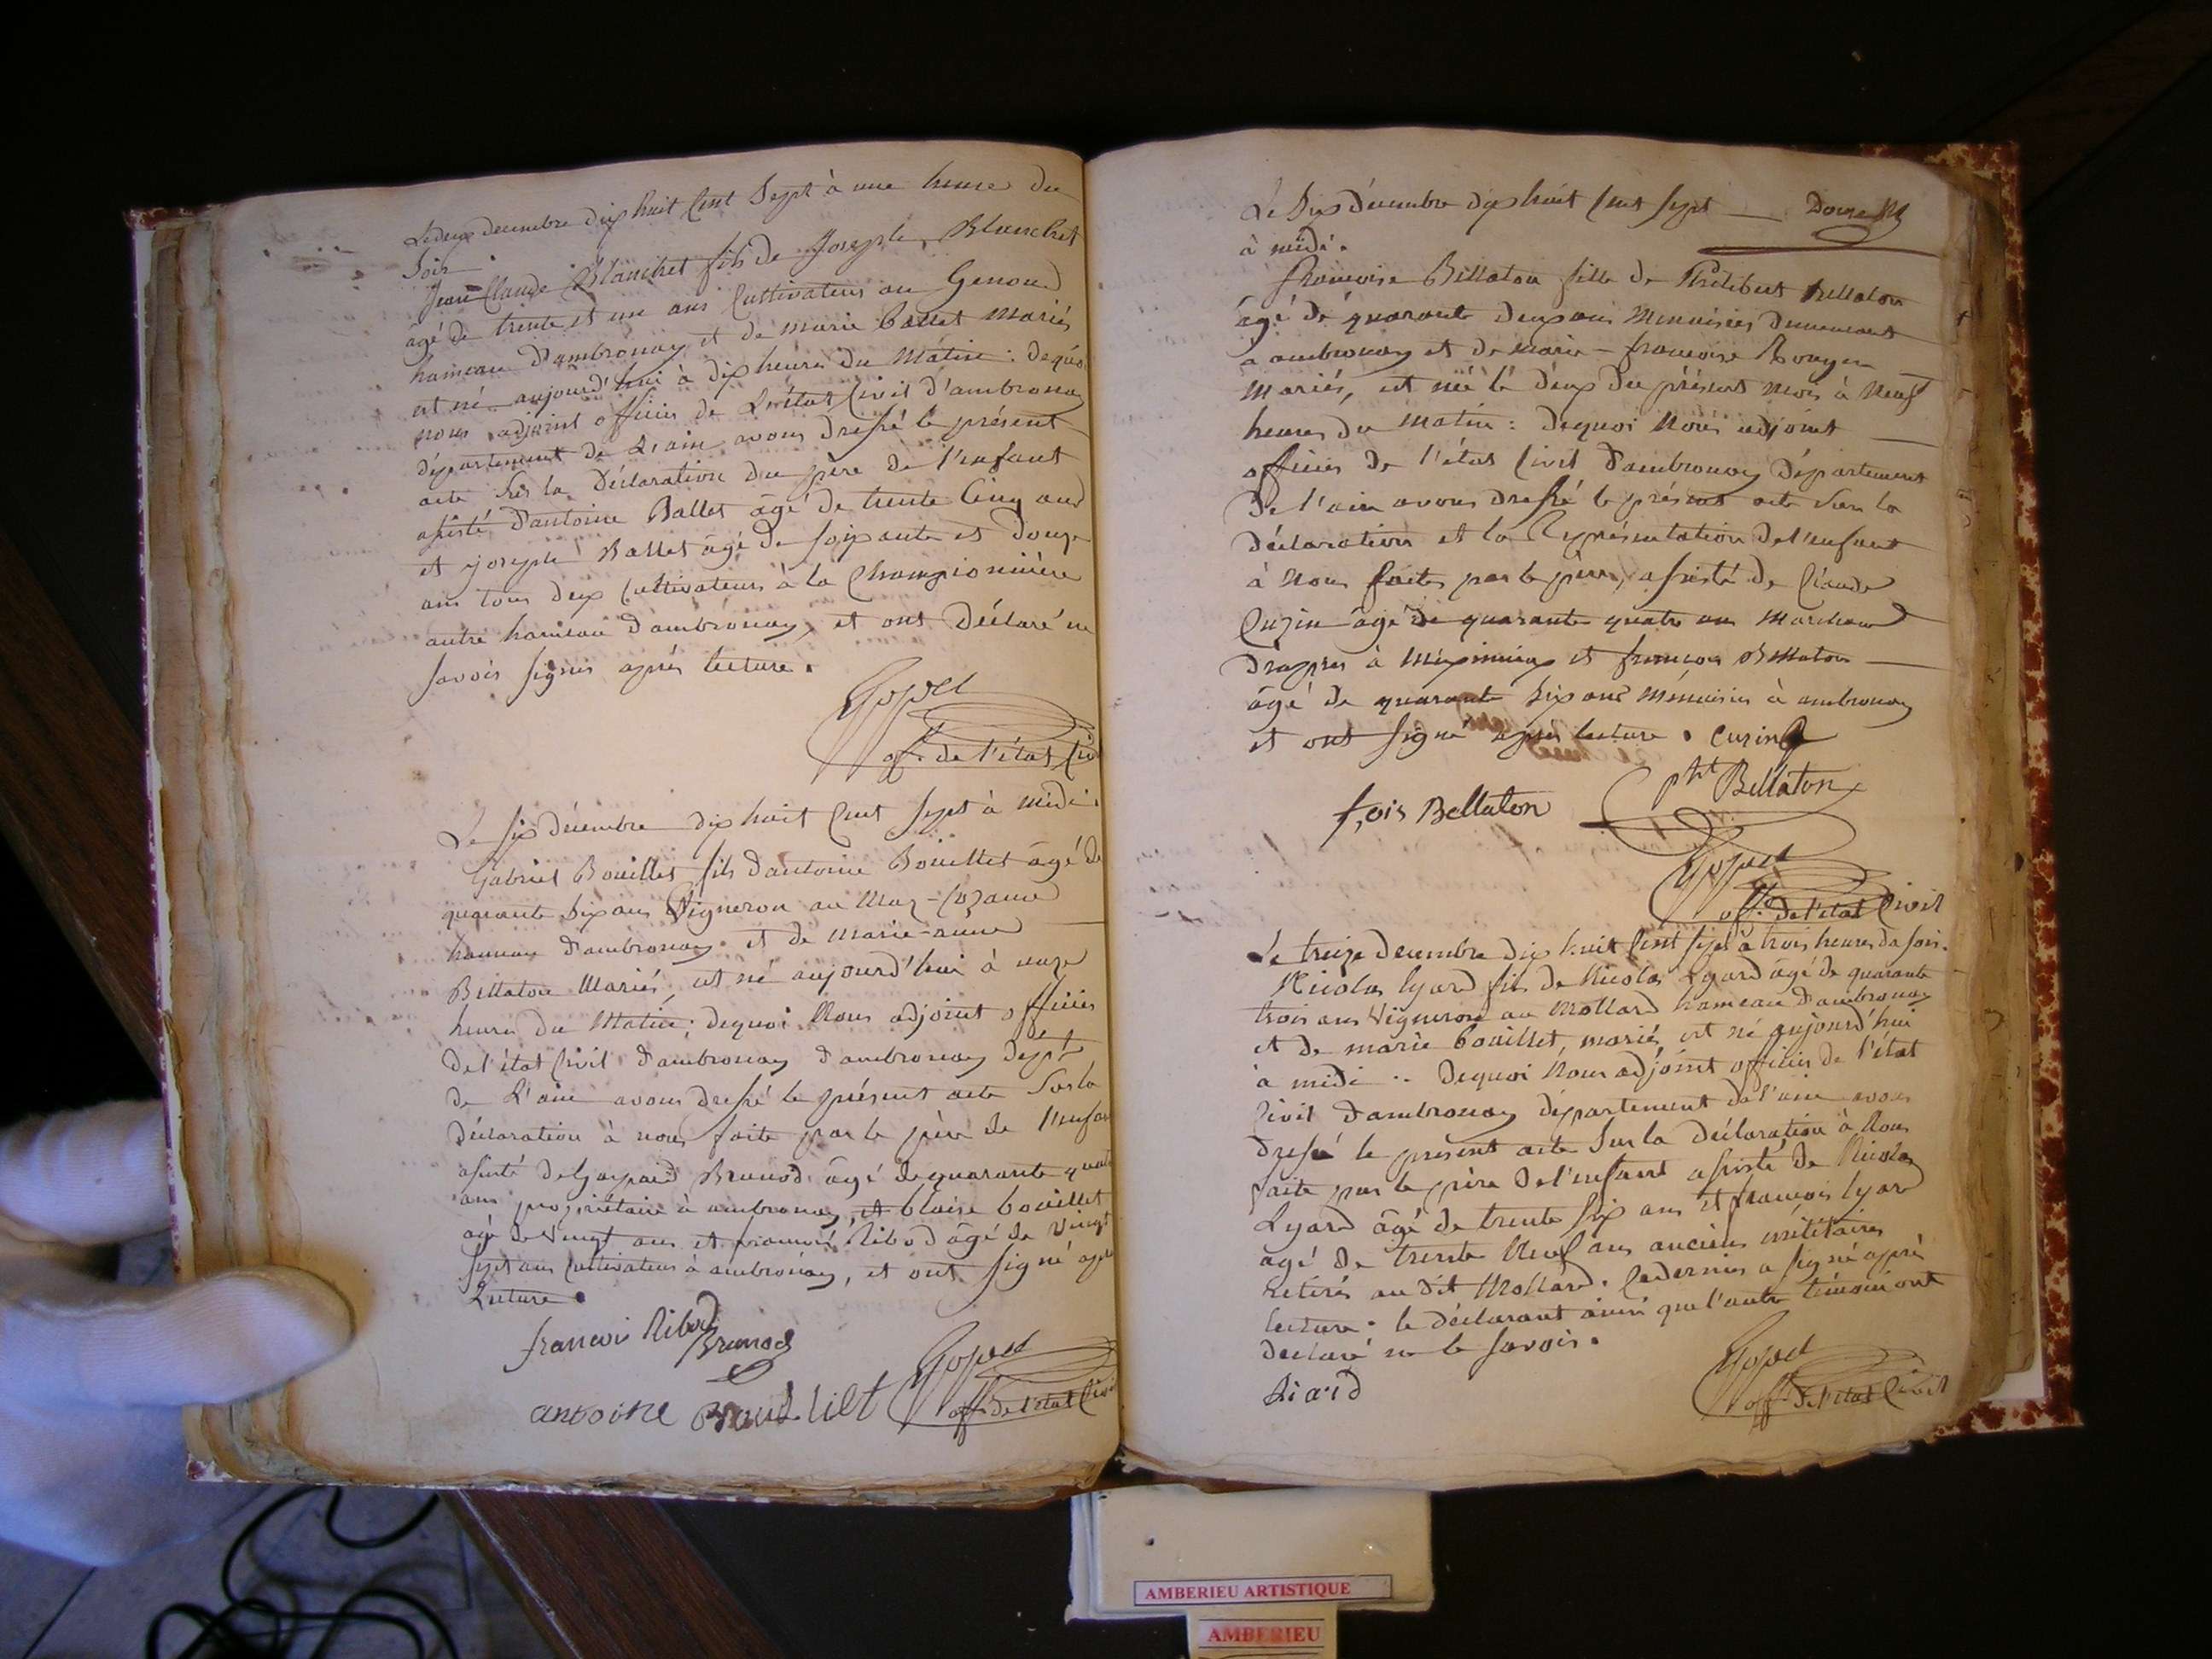 Le deux decembre dix huit Cent Sept à une heure du
Soir.
Jean Claude Blanchet fils de Joseph Blanchet
âgé de trente et un ans Cultivateur au Genoud
hameau d'ambronay et de marie ballet mariés
est né aujourd'hui à dix heures du Matin : dequoi
nous adjoint officier de L'état Civil d'ambronay
département de L'ain avons dressé le présent
acte sur la Déclaration du père de l'enfant
assisté d'antoine Ballet âgé de trente Cinq ans
et joseph Ballet âgé de soixante et douze
ans tous deux Cultivateurs à la Championnière
autre hameau d'ambronay, et ont Déclaré ne
savoir signer après lecture.
off. de l'état Civil
Le six décembre dix huit Cent Sept à midi.
Gabriel Bouillet fils d'antoine Bouillet âgé de
quarante six ans Vigneron au
hameau d'ambronay et de marie-anne
Bellaton Mariés, est né aujourd'hui à onze
heures du Matin ; dequoi Nous adjoint officier
de l'état Civil d'ambronay d'ambronay dept
de L'ain avons dressé le présent acte Sur la
déclaration à nous faite par le père de l'enfant
assisté de Gaspard Brunod âgé de quarante quatre
ans propriétaire à ambronay, et blaise bouillet
agé de Vingt ans et francois Ribod âgé de Vingt
Sept ans Cultivateurs à ambronay, et ont Signé après
Lecture.
francois Ribod
Brunod
antoine
off. de l'état Civil
Le Six décembre dix huit Cent Sept
à midi.
françoise Bellaton fille de Philibert Bellaton
âgé de quarante deux ans Menuisier demeurant
a ambronay et de marie-francoise
Mariés, est née le deux du présent mois à Neuf
heures du matin : dequoi Nous adjoint
officier de l'état Civil d'ambronay Département
de l'ain avons dressé le présent acte Sur la
déclaration et la Représentation de l'enfant
à Nous faites par le père, assisté de Claude
Cuzin âgé de quarante quatre ans Marchand
Drappier à et francois Bellaton
âgé de quarante Six ans Menuisier à ambronay
et ont Signé après lecture. Cuzin
f,ois Bellaton
pht Bellaton
off. de l'etat Civil
Le treize decembre dix huit Cent Sept à trois heures du soir.
Nicolas Lyard fils de Nicolas Lyard âgé de quarante
trois ans Vigneron au Mollard hameau d'ambronay
et de marie bouillet, mariés est né aujourd'hui
à midi .. Dequoi Nous adjoint officier de l'état
Civil d'ambronay département de l'ain avons
dressé le present acte Sur la déclaration à Nous
faite par le père de l'enfant assisté de Nicolas
Lyard âgé de trente Six ans et francois Lyard
agé de trente Neuf ans anciens militaires
Retirés au dit Mollard. Ce dernier a Signé après
lecture. le déclarant ainsi que l'autre témoin ont
declaré ne le Savoir.
Liard
off. de l'état Civil
AMBERIEU ARTISTIQUE
AMBERIEU